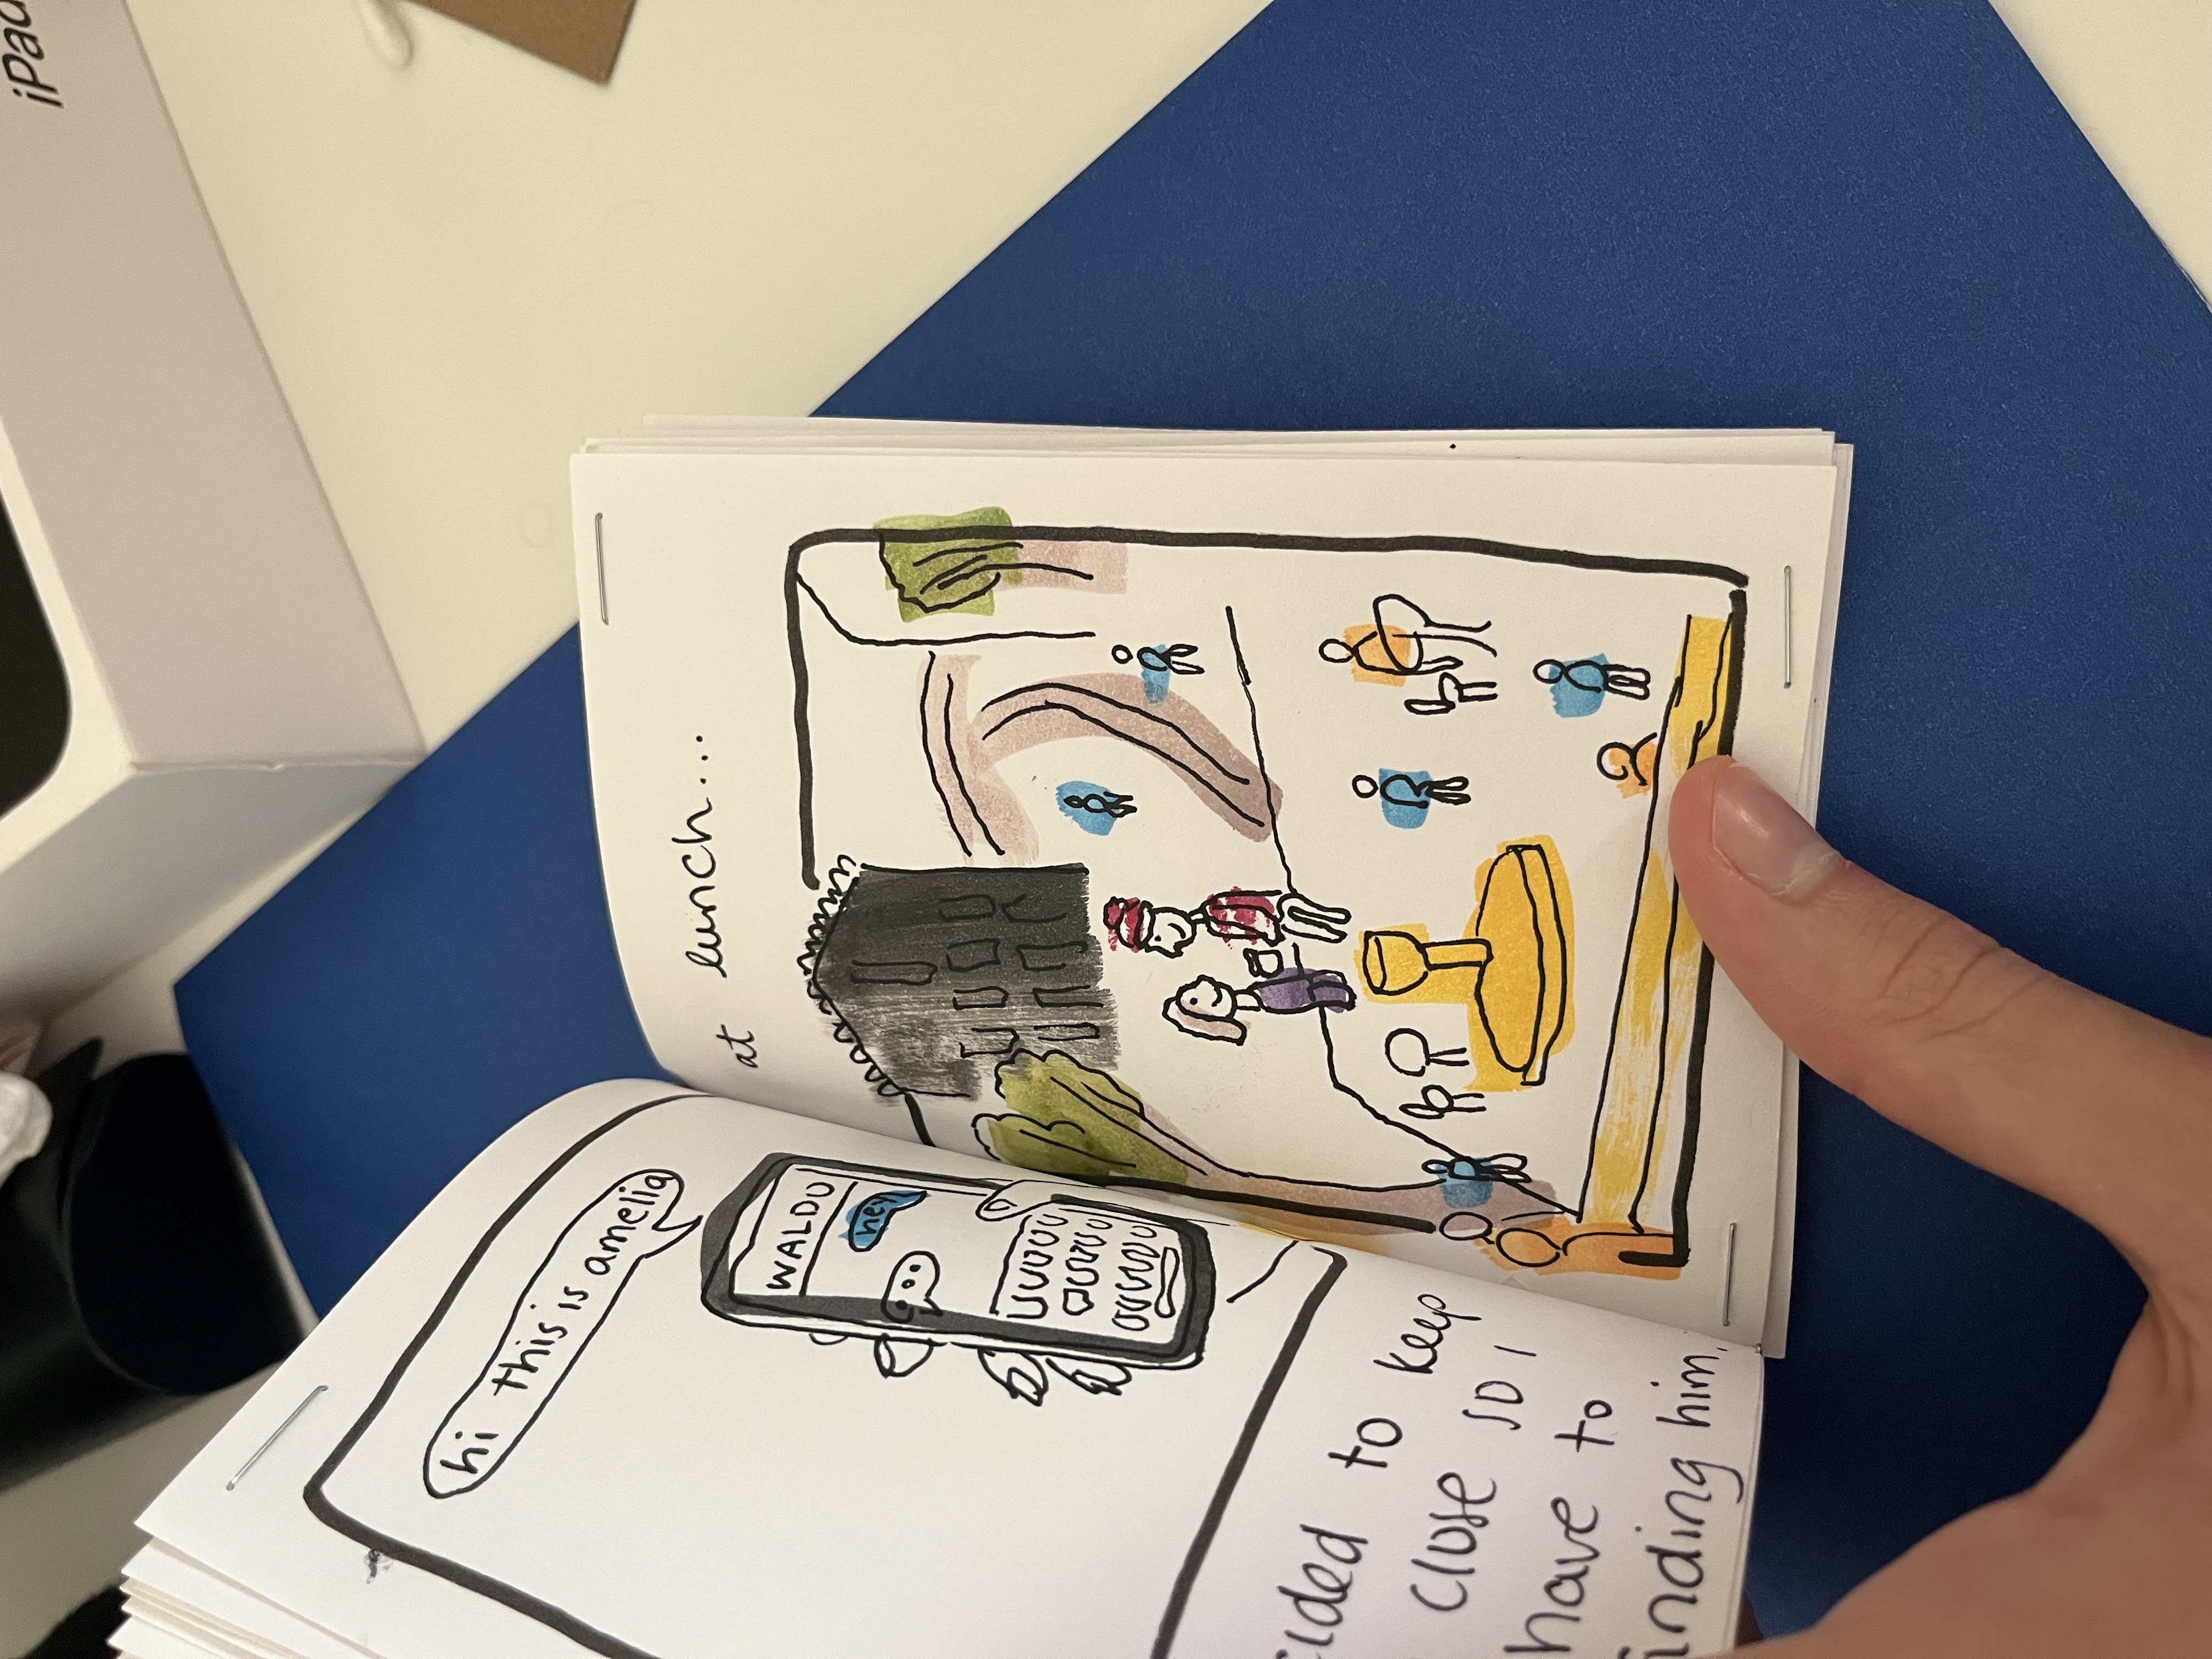 iPad
hi this is amelia
WALDO
hey
cided to keep
close so i
have to
inding him.
at lunch...